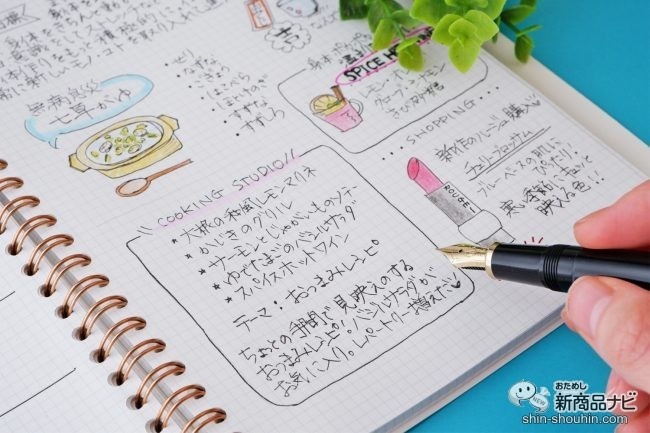 モノ・コトを取り入れて
無病息災
七草がゆ
・せり
・なずな
・ごぎょう
・はこべら
・ほとけのざ
・すずな
・すずしろ
SPICE HO
レモン・オレンジ
クローブ・シナモン
きび砂糖
SHOPPING
新作のルージュ購入♡
チェリーブロッサム
ブルーベースの肌に
ぴったり!
寒い季節にキュッと
映える色!!
ROUGE
COOKING STUDIO!!
★大根の和風レモンマリネ
★かじきのグリル
★サーモンとじゃがいものソテー
★ゆでたまごのバジルサラダ
★スパイスホットワイン
テーマ:おつまみレシピ
ちょっとの手間で見映えのする
おつまみレシピ!バジルサラダが
お気に入り。レパートリー増えた♡
NEW
おためし
新商品ナビ
shin-shouhin.com